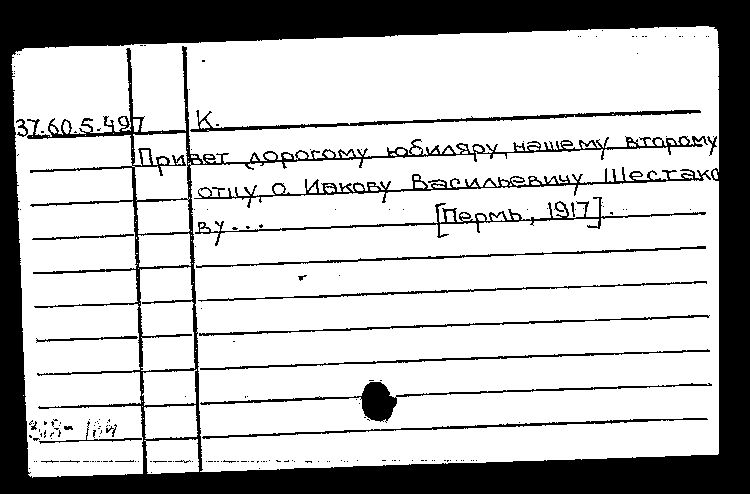 37.60.5.497 К.
Привет дорогому юбиляру, нашему второму
отцу, о. Иакову Васильевичу Шестако
ву... [Пермь, 1917].